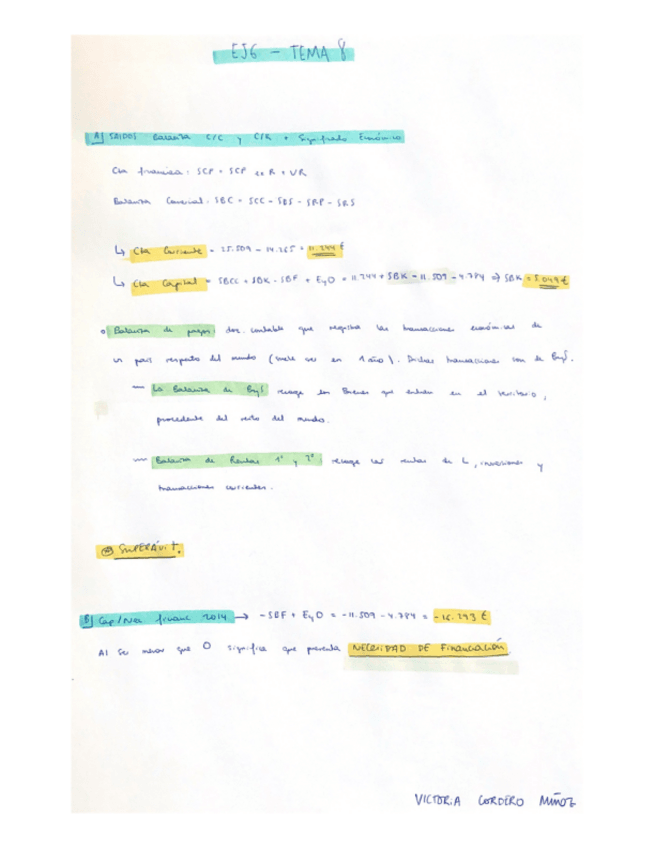 EJ6 - TEMA 8
A) SALDOS Balanza C/C y C/K + Significado Económico
Cta financiera: SCP + SCP + VR
Balanza Comercial: SBC = SCC - SBS - SRP - SRS
↳ Cta Corriente = 25.509 - 14.265 = 11.244 €
↳ Cta Capital = SBCC + SBK - SBF + EyO = 11.244 + SBK - 11.509 - 4.784 => SBK = 5.049 €
Balanza de pagos: doc. contable que registra las transacciones económicas de
un país respecto del mundo (suele ser en 1 año). Dichas transacciones son de ByS.
La Balanza de ByS recoge los Bienes que entran en el territorio,
procedente del resto del mundo.
Balanza de Rentas 1ª y 2ª: recoge las rentas de L, inversiones y
transacciones corrientes.
SUPERÁVIT.
B) Cap/Nec financ 2014 → -SBF + EyO = -11.509 - 4.784 = -16.293 €
Al ser menor que 0 significa que presenta NECESIDAD DE Financiación
VICTORIA CORDERO MUÑOZ